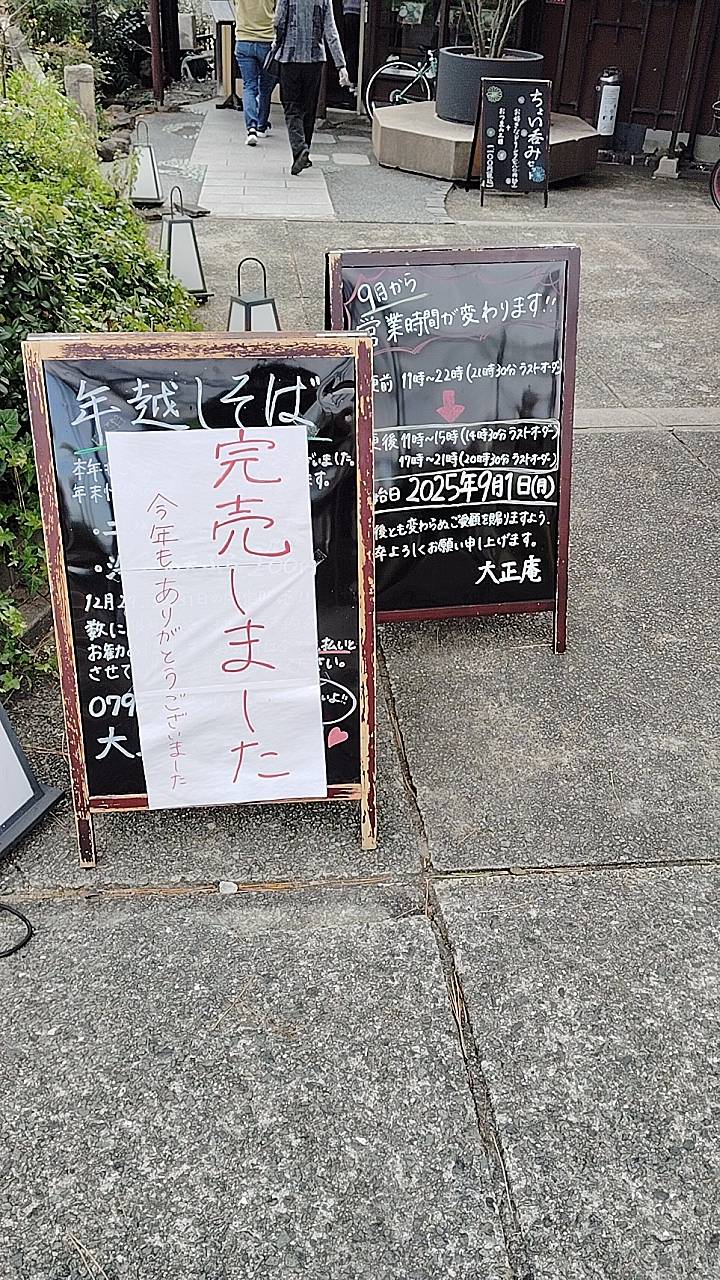 年越しそば
完売しました
今年もありがとうございました
本年
いました。
年末
ます。
12月2
数に
お勧
払いと
させて
さい。
079
いよ!!
大
9月から
営業時間が変わります!!
更前 11時〜22時(21時30分 ラストオーダー)
更後 11時〜15時(14時30分 ラストオーダー)
17時〜21時(20時30分 ラストオーダー)
始日 2025年9月1日(月)
後とも変わらぬご愛顧を賜りますよう、
卒よろしくお願い申し上げます。
大正庵
ちょい呑みセット
おつまみ三品